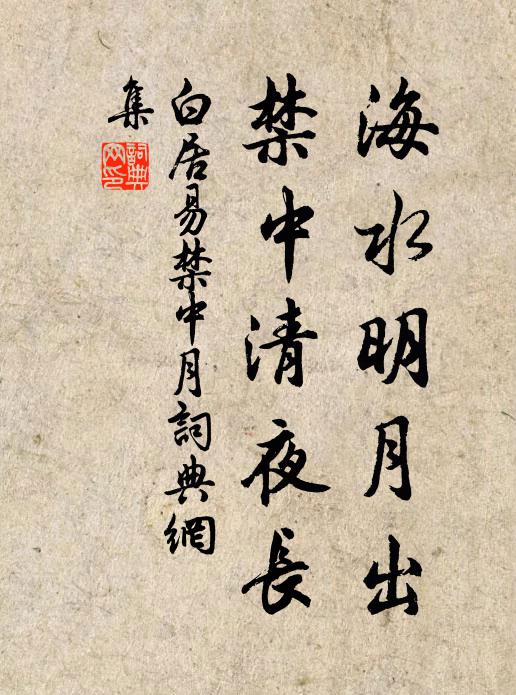 海水明月出
禁中清夜長
白居易禁中月詞典網
集
詞典
网印